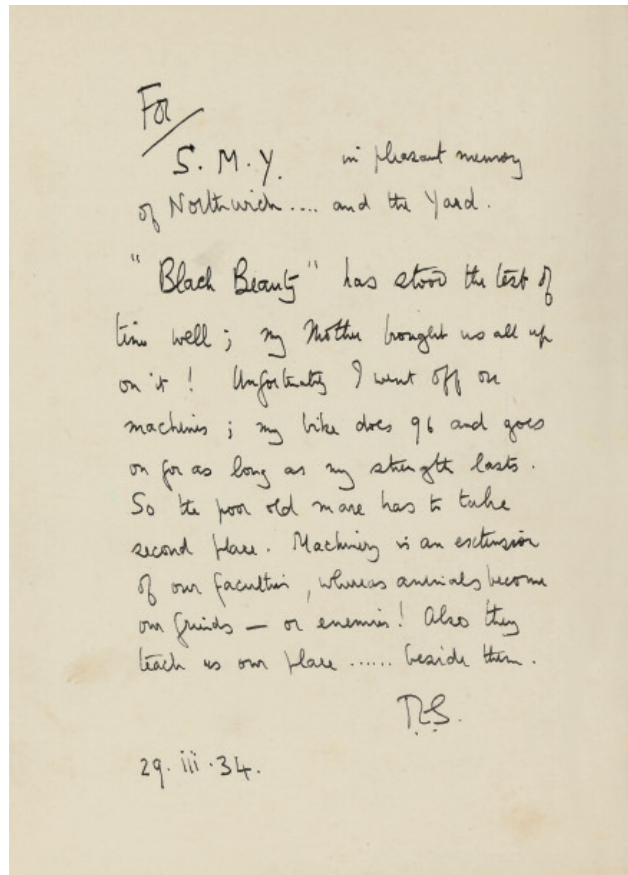 For
S. M. Y. in pleasant memory
of Northwich .... and the Yard.
"Black Beauty" has stood the test of
time well; my Mother brought us all up
on it! Unfortunately I went off on
machines; my bike does 96 and goes
on for as long as my strength lasts.
So the poor old mare has to take
second place. Machinery is an extension
of our faculties, whereas animals become
our friends — or enemies! Also they
teach us our place ...... beside them.
29. iii. 34.